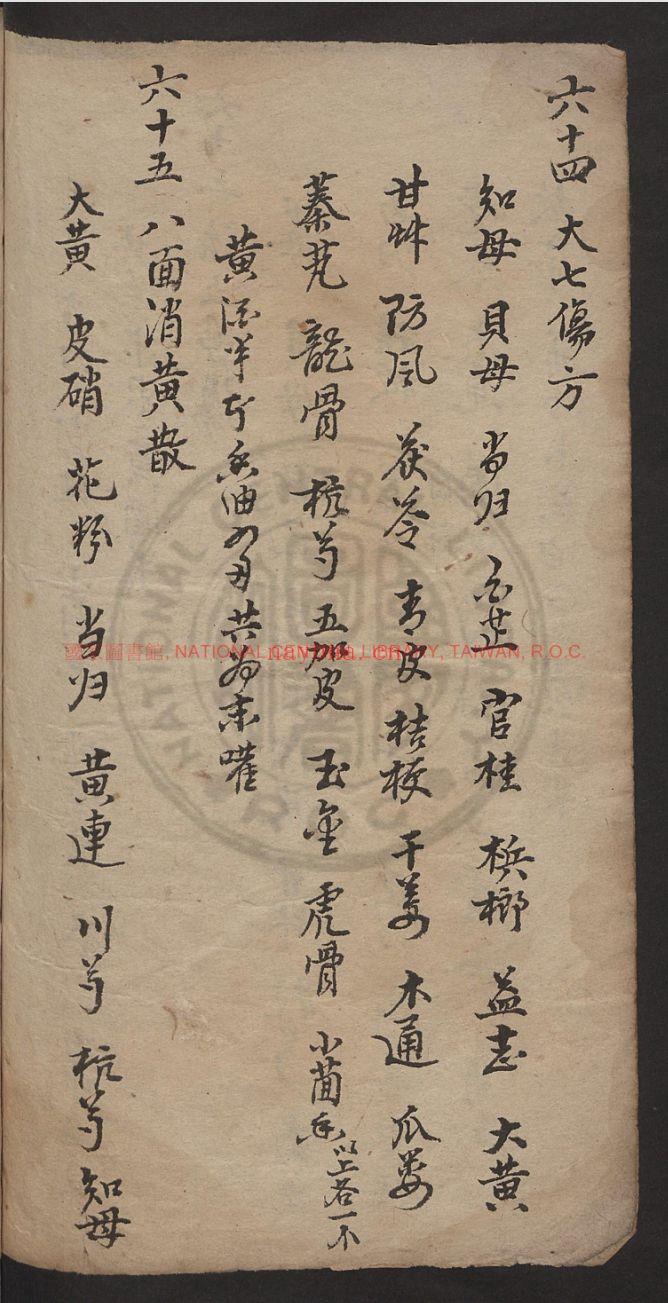 六十四 大七傷方
知母 貝母 当归 白芷 官桂 梹榔 益志 大黄
甘艸 防风 茯苓 青皮 桔梗 干姜 木通 瓜蒌
蓁艽 龍骨 杭芍 五加皮 玉金 虎骨 小茴香 以上各一小
黄酒半斤 香油四两 共为末嚾
六十五 八面消黄散
大黄 皮硝 花粉 当归 黄連 川芎 杭芍 知母
國家圖書館, NATIONAL CENTRAL LIBRARY, TAIWAN, R.O.C.